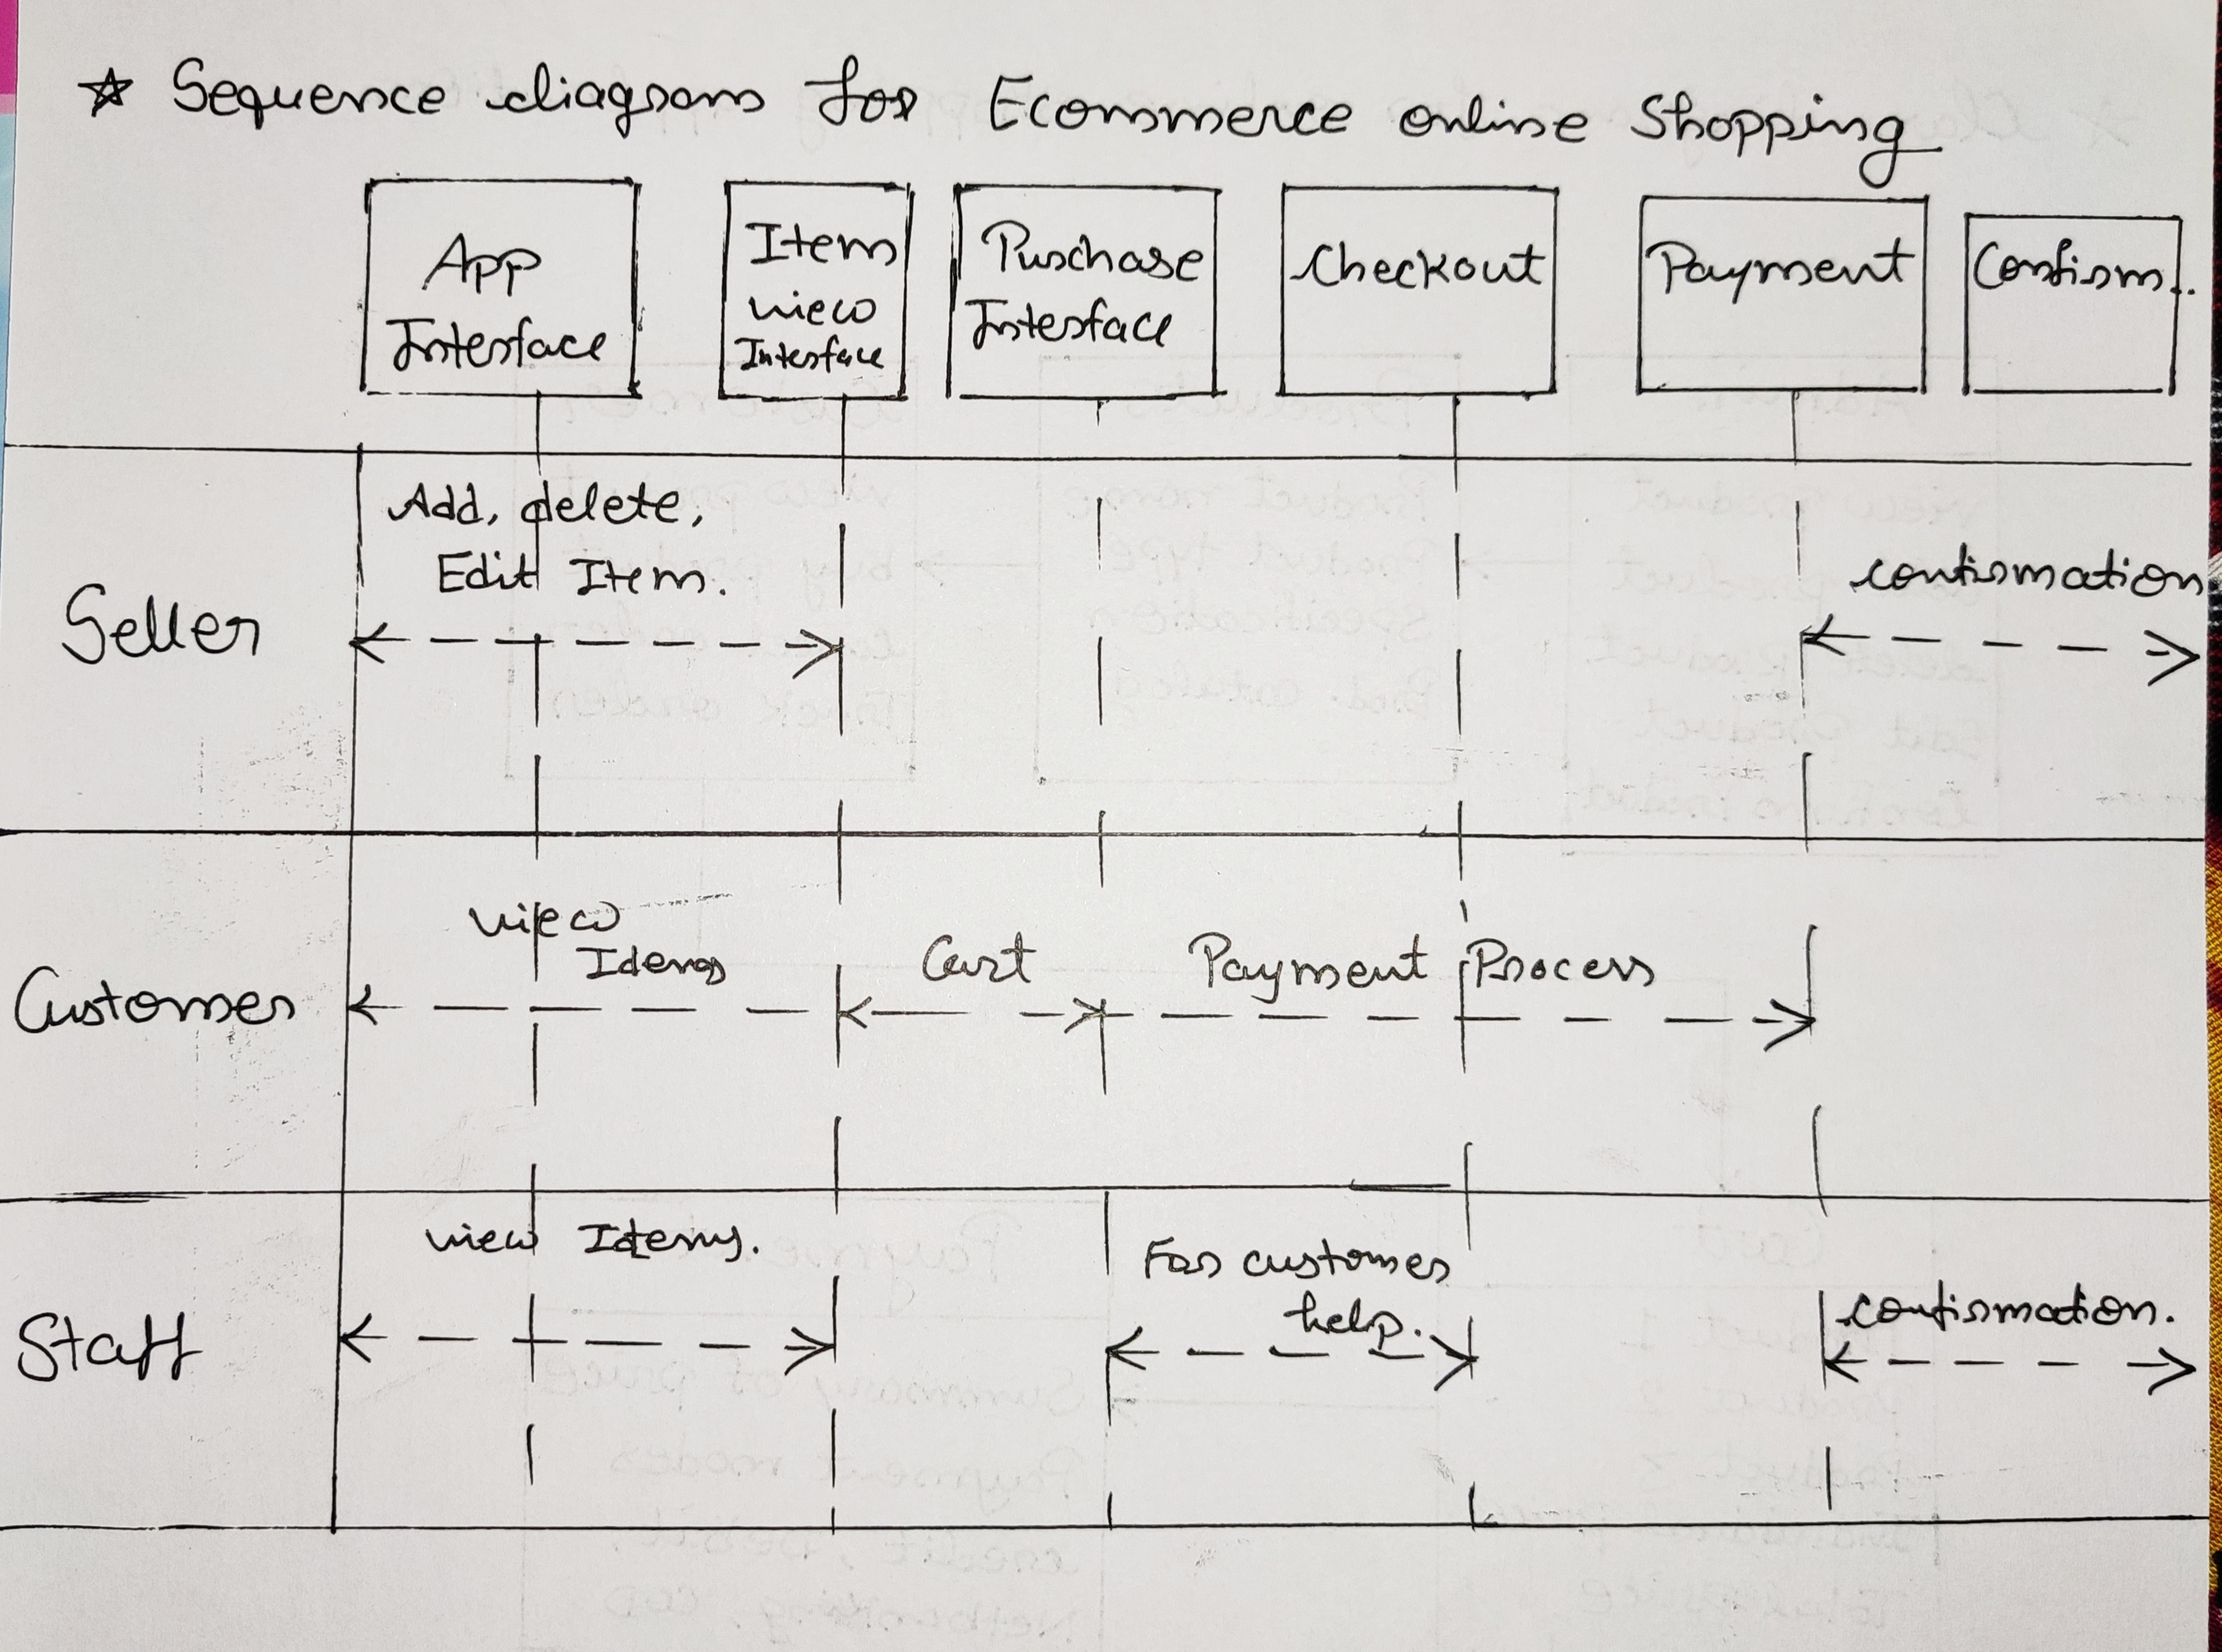 ☆ Sequence diagram for Ecommerce online Shopping
App
Interface
Item
view
Interface
Purchase
Interface
Checkout
Payment
Confirm..
Seller
Add, delete,
Edit Item.
confirmation
Customer
view
Idems
Cart
Payment Process
Staff
view Idems.
For customer
help.
confirmation.